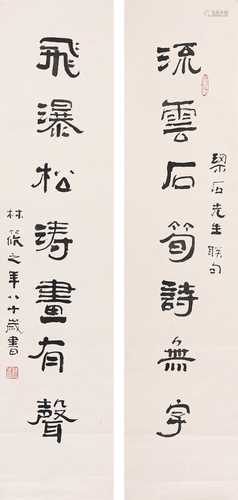 流雲石筍詩無字
梁石先生联句
飛瀑松濤畫有聲
林筱之年八十歲書